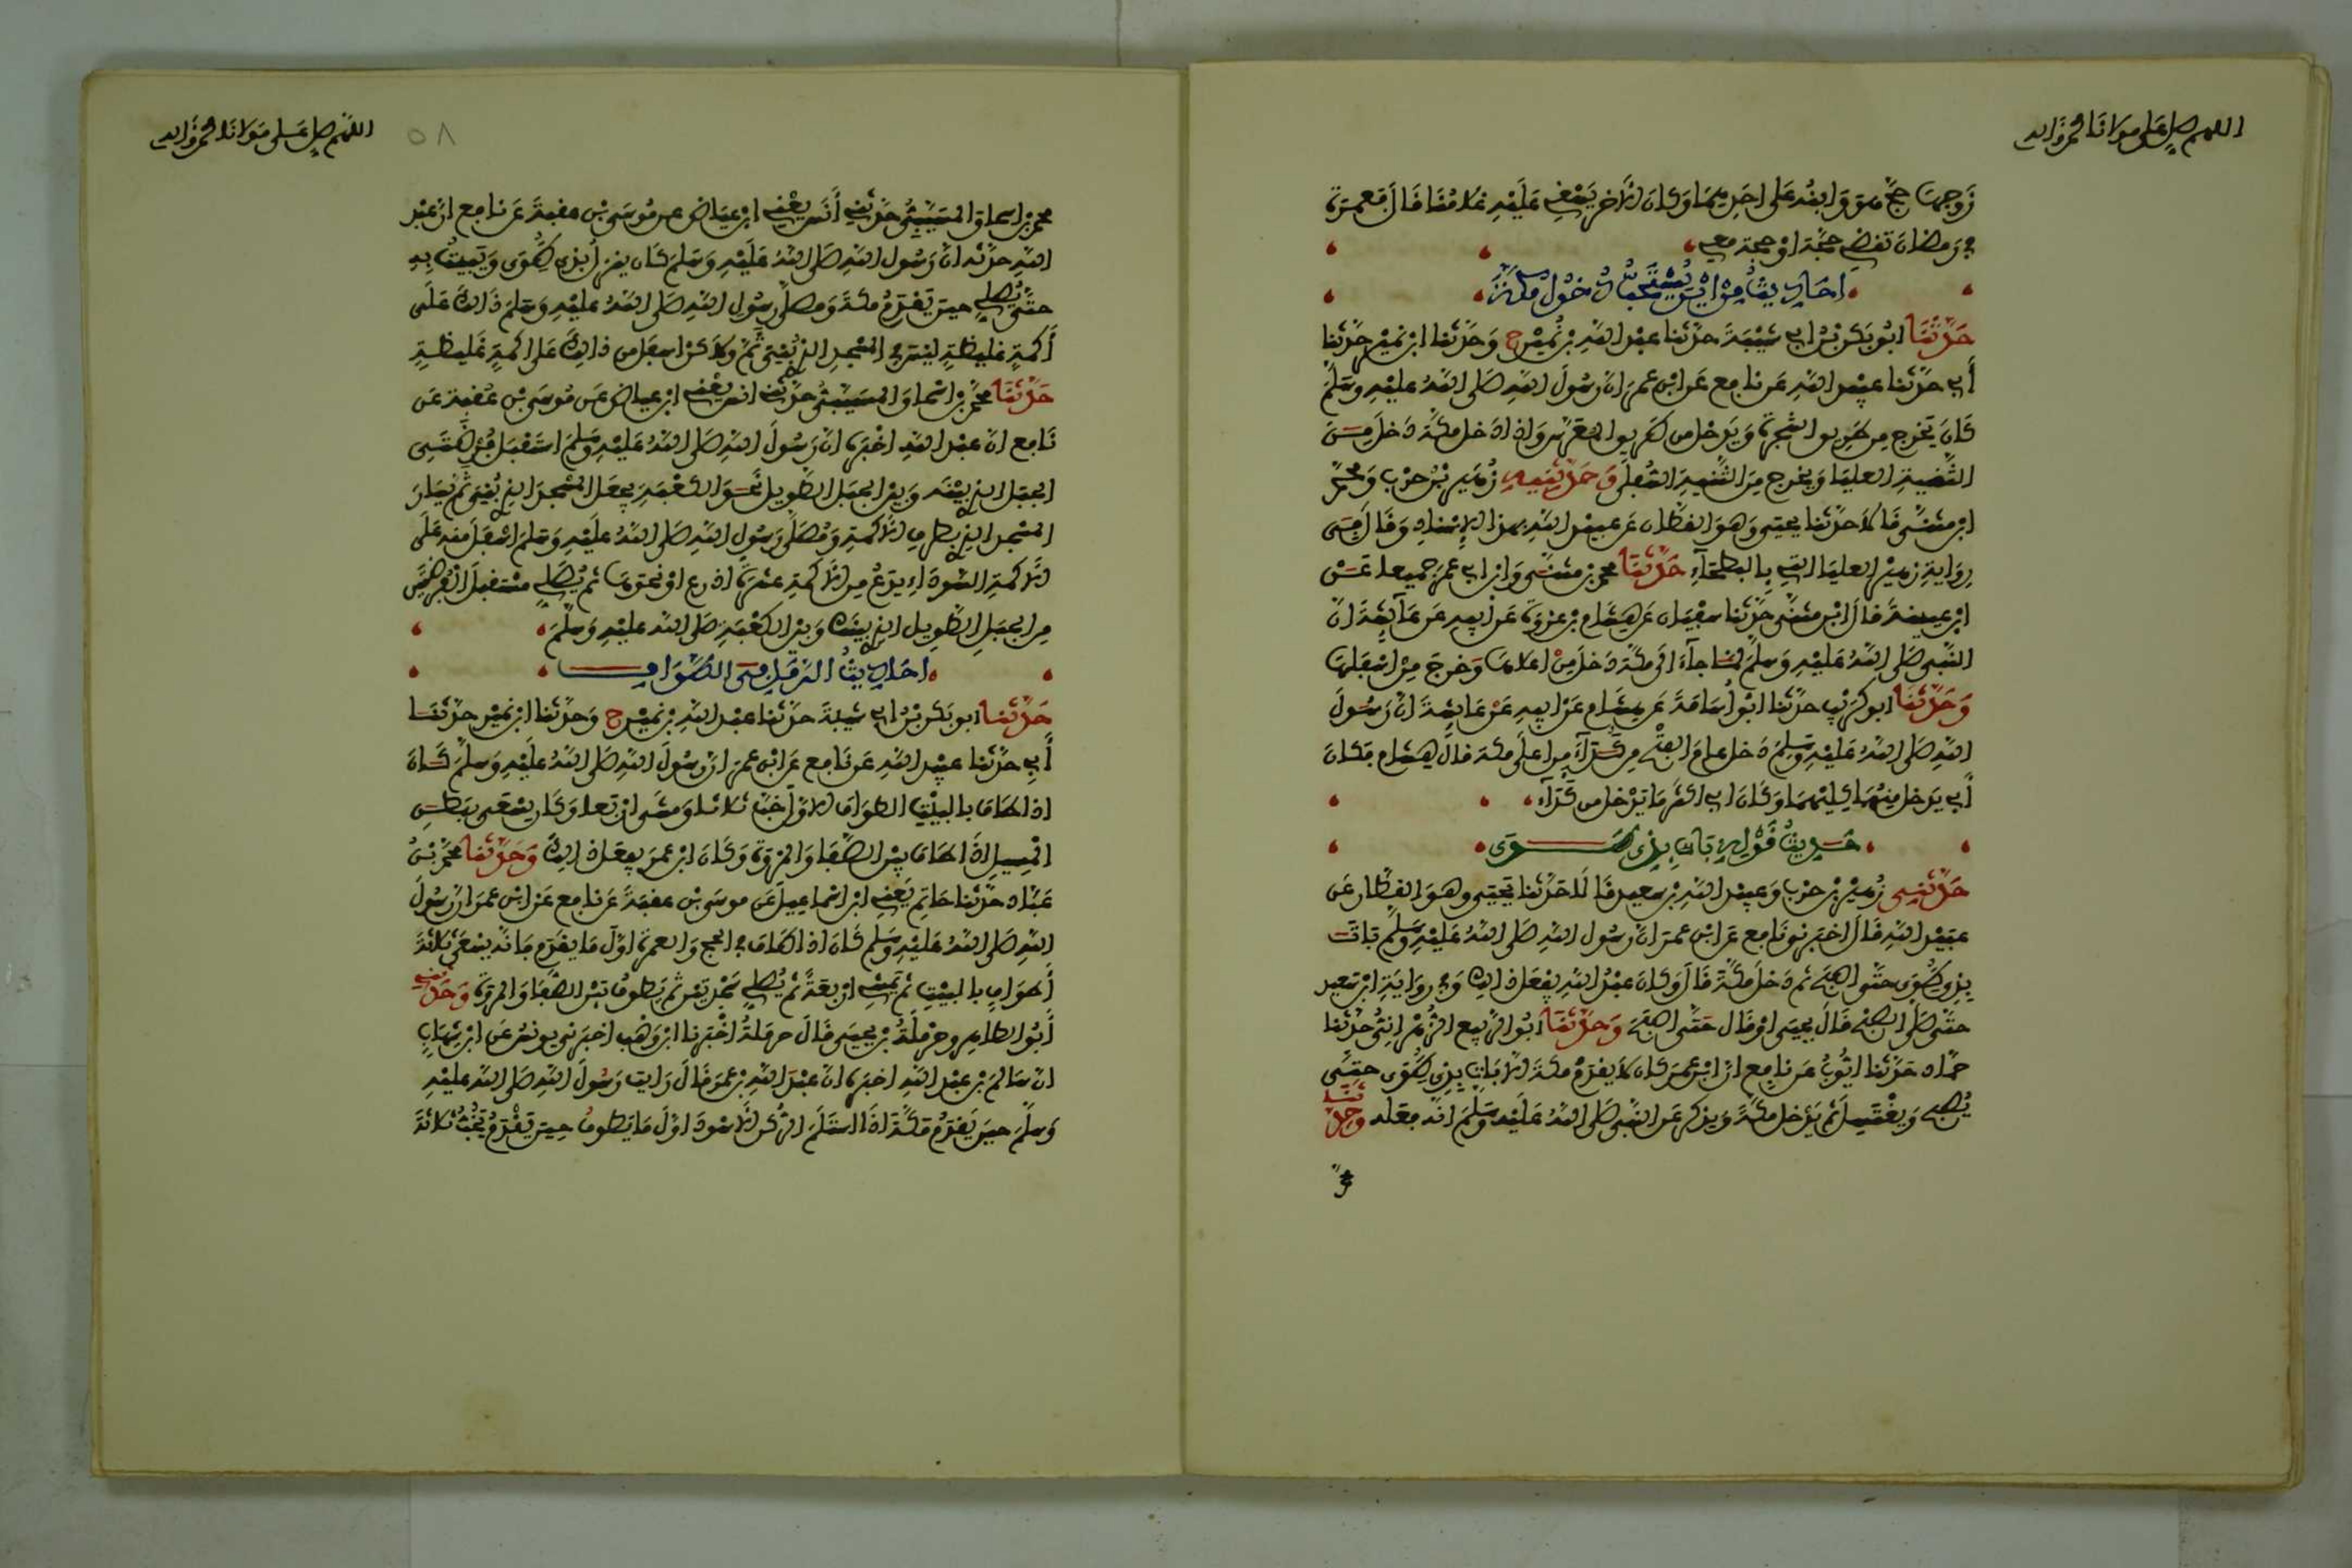 اللهم صل على مولانا محمد وآله
زوجها حج هو وابنه على احدهما وكان الآخر يسقي عليه غلامنا قال فعمرة
في رمضان تقضي حجة او حجة معي
احاديث من اين يستحب دخول مكة
حدثنا ابو بكر بن ابي شيبة حدثنا عبد الله بن نمير ح وحدثنا ابن نمير حدثنا
أبي حدثنا عبيد الله عن نافع عن ابن عمر ان رسول الله صلى الله عليه وسلم
كان يخرج من طريق الشجرة ويدخل من طريق المعرس واذا دخل مكة دخل من
الثنية العليا ويخرج من الثنية السفلى وحدثنيه زهير بن حرب ومحمد
ابن مثنى قالا حدثنا يحيى وهو القطان عن عبيد الله بهذا الإسناد وقال في
رواية زهير العليا التي بالبطحاء حدثنا محمد بن مثنى وابن ابي عمر جميعا عن
ابن عيينة قال ابن مثنى حدثنا سفيان عن هشام بن عروة عن ابيه عن عائشة ان
النبي صلى الله عليه وسلم لما جاء الى مكة دخل من اعلاها وخرج من اسفلها
وحدثنا ابو كريب حدثنا ابو اسامة عن هشام عن ابيه عن عائشة ان رسول
الله صلى الله عليه وسلم دخل عام الفتح من كداء من اعلى مكة قال هشام فكان
أبي يدخل منهما كليهما وكان ابي اكثر ما يدخل من كداء
حديث قوله بات بذي طوى
حدثني زهير بن حرب وعبيد الله بن سعيد قالا حدثنا يحيى وهو القطان عن
عبيد الله قال اخبرني نافع عن ابن عمر ان رسول الله صلى الله عليه وسلم بات
بذي طوى حتى اصبح ثم دخل مكة قال وكان عبد الله يفعل ذلك وفي رواية ابن سعيد
حتى صلى الصبح قال يحيى او قال حتى اصبح وحدثنا ابو الربيع الزهراني حدثنا
حماد حدثنا ايوب عن نافع ان ابن عمر كان لا يقدم مكة الا بات بذي طوى حتى
يصبح ويغتسل ثم يدخل مكة ويذكر عن النبي صلى الله عليه وسلم انه فعله وحدثنا
محمد
اللهم صل على مولانا محمد وآله
٥٨
محمد بن اسحاق المسيبي حدثني أنس يعني ابن عياض عن موسى بن عقبة عن نافع ان عبد
الله حدثه ان رسول الله صلى الله عليه وسلم كان ينزل بذي طوى ويبيت به
حتى يصلي حين يقدم مكة ومصلى رسول الله صلى الله عليه وسلم ذلك على
أكمة غليظة ليس في المسجد الذي بني ثم ولكن اسفل من ذلك على اكمة غليظة
حدثنا محمد بن اسحاق المسيبي حدثني انس يعني ابن عياض عن موسى بن عقبة عن
نافع ان عبد الله اخبره ان رسول الله صلى الله عليه وسلم استقبل فرضتي
الجبل الذي بينه وبين الجبل الطويل نحو الكعبة يجعل المسجد الذي بني ثم يسار
المسجد الذي بطرف الاكمة ومصلى رسول الله صلى الله عليه وسلم اسفل منه على
الاكمة السوداء يدع من الاكمة عشرة اذرع او نحوها ثم يصلي مستقبل الفرضتين
من الجبل الطويل الذي بينك وبين الكعبة صلى الله عليه وسلم
احاديث الرمل في الطواف
حدثنا ابو بكر بن ابي شيبة حدثنا عبد الله بن نمير ح وحدثنا ابن نمير حدثنا
أبي حدثنا عبيد الله عن نافع عن ابن عمر ان رسول الله صلى الله عليه وسلم كان
اذا طاف بالبيت الطواف الاول خب ثلاثا ومشى اربعا وكان يسعى ببطن
المسيل اذا طاف بين الصفا والمروة وكان ابن عمر يفعل ذلك وحدثنا محمد بن
عباد حدثنا حاتم يعني ابن اسماعيل عن موسى بن عقبة عن نافع عن ابن عمر ان رسول
الله صلى الله عليه وسلم كان اذا طاف في الحج والعمرة اول ما يقدم فانه يسعى ثلاثة
أطواف بالبيت ثم يمشي اربعة ثم يصلي سجدتين ثم يطوف بين الصفا والمروة وحدثني
أبو الطاهر وحرملة بن يحيى قال حرملة اخبرنا ابن وهب اخبرني يونس عن ابن شهاب
ان سالم بن عبد الله اخبره ان عبد الله بن عمر قال رايت رسول الله صلى الله عليه
وسلم حين يقدم مكة اذا استلم الركن الاسود اول ما يطوف حين يقدم يخب ثلاثة